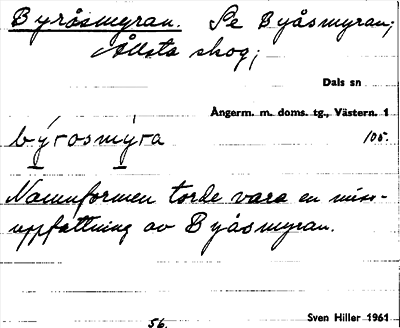 Byråsmyran. Se Byåsmyran;
Ållsta skog;
Dals sn
Ångerm. m. doms. tg., Västern. 1
býrosmýra 105.
Namnformen torde vara en miss-
uppfattning av Byåsmyran.
56. Sven Hiller 1961